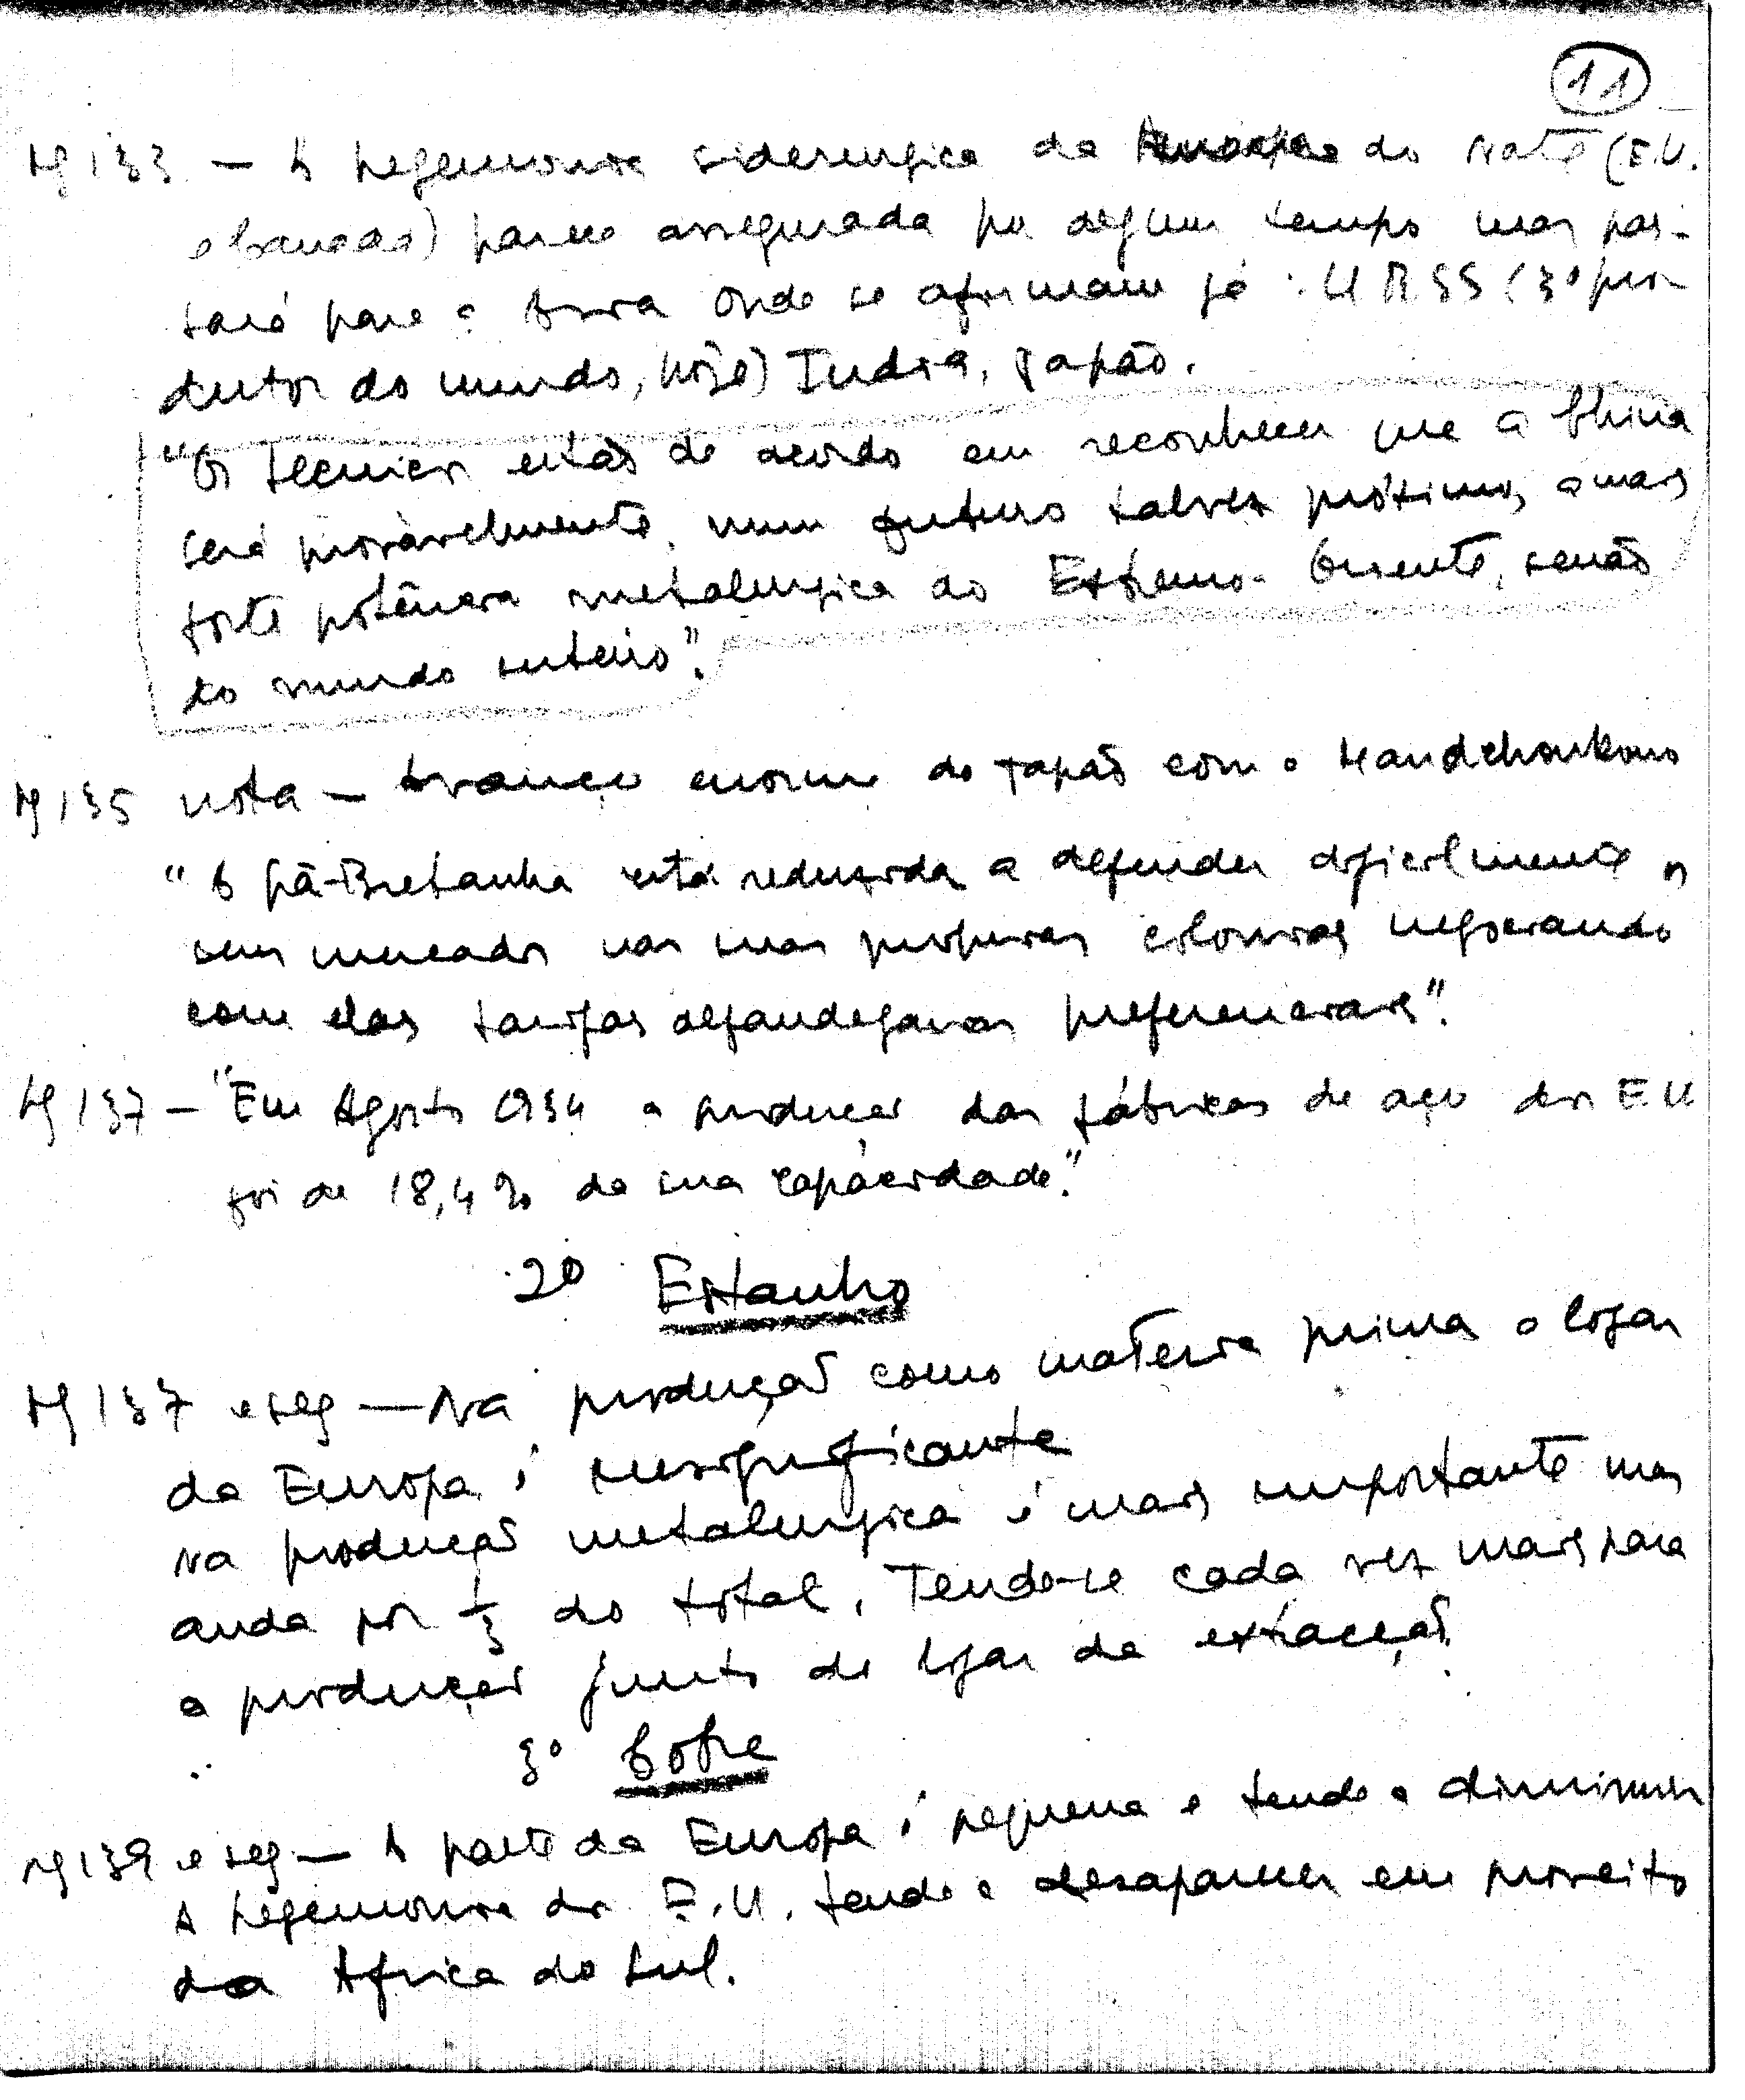 11
pg 133 — A hegemonia siderurgica da America do Norte (E.U.
e Canadá) parece assegurada por algum tempo mas pas-
sará para a Asia onde se afirmam já: URSS (3º pro-
dutor do mundo, hoje) India, Japão.
"Os tecnicos estão de acordo em reconhecer que a China
será provàvelmente, num futuro talvez próximo, a mais
forte potência metalurgica do Extremo-Oriente, senão
do mundo inteiro".
pg 135 nota — Avanço enorme do Japão com o Mandchoukouo
"A Grã-Bretanha está reduzida a defender dificilmente os
seus mercados nas suas proprias colonias negociando
com elas tarifas alfandegarias preferenciais".
pg 137 — "Em Agosto 1934 a produção das fábricas de aço dos E.U
foi de 18,4% da sua capacidade."
2º Estanho
pg 137 e seg — Na produção como materia prima o logar
da Europa é insignificante
Na produção metalurgica é mais importante mas
anda por 1/3 do total. Tende-se cada vez mais para
a produção junto do logar da extracção.
3º Cobre
pg 139 e seg — A parte da Europa é pequena e tende a diminuir
A hegemonia dos E.U. tende a desaparecer em proveito
da Africa do Sul.